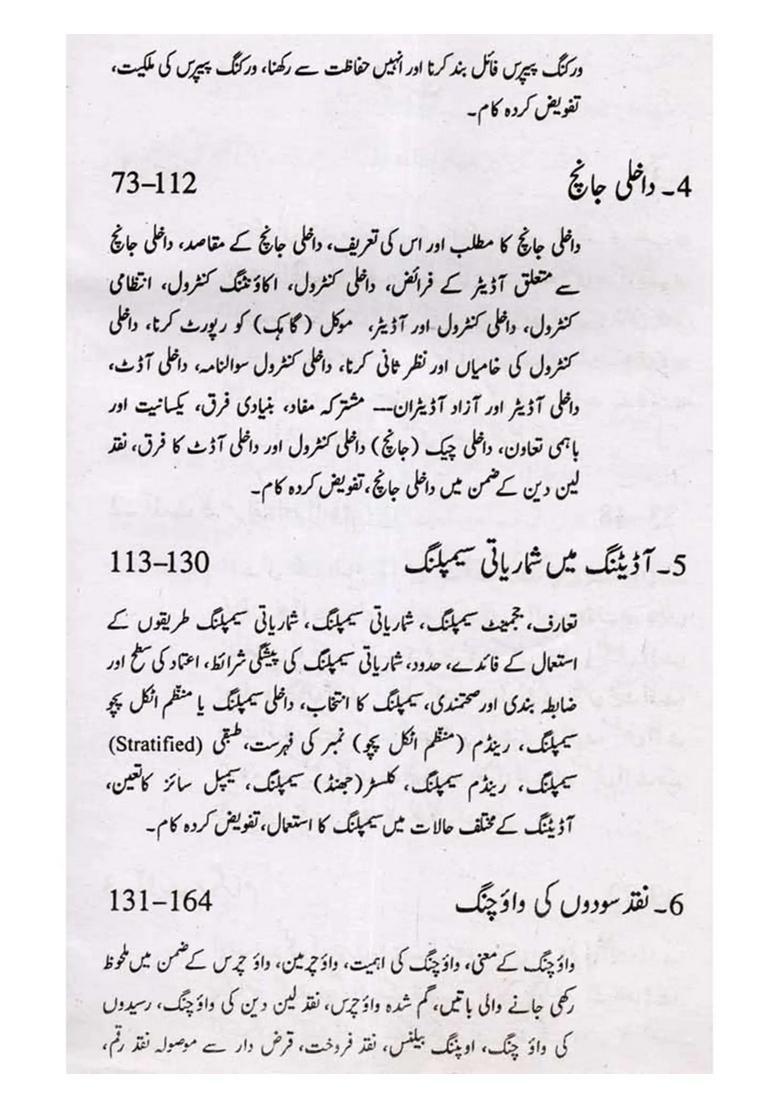 ورکنگ پیپرس فائل بند کرنا اور انہیں حفاظت سے رکھنا، ورکنگ پیپرس کی ملکیت،
تفویض کردہ کام۔
4۔ داخلی جانچ 73–112
داخلی جانچ کا مطلب اور اس کی تعریف، داخلی جانچ کے مقاصد، داخلی جانچ
سے متعلق آڈیٹر کے فرائض، داخلی کنٹرول، اکاؤنٹنگ کنٹرول، انتظامی
کنٹرول، داخلی کنٹرول اور آڈیٹر، موکل (گاہک) کو رپورٹ کرنا، داخلی
کنٹرول کی خامیاں اور نظر ثانی کرنا، داخلی کنٹرول سوالنامہ، داخلی آڈٹ،
داخلی آڈیٹر اور آزاد آڈیٹران— مشترکہ مفاد، بنیادی فرق، یکسانیت اور
باہمی تعاون، داخلی چیک (جانچ) داخلی کنٹرول اور داخلی آڈٹ کا فرق، نقد
لین دین کے ضمن میں داخلی جانچ، تفویض کردہ کام۔
5۔ آڈیٹنگ میں شماریاتی سیمپلنگ 113–130
تعارف، ججمینٹ سیمپلنگ، شماریاتی سیمپلنگ، شماریاتی سیمپلنگ طریقوں کے
استعمال کے فائدے، حدود، شماریاتی سیمپلنگ کی پیشگی شرائط، اعتماد کی سطح اور
ضابطہ بندی اور صحتمندی، سیمپلنگ کا انتخاب، داخلی سیمپلنگ یا منظم اٹکل پچو
سیمپلنگ، رینڈم (منظم اٹکل پچو) نمبر کی فہرست، طبقی (Stratified)
سیمپلنگ، رینڈم سیمپلنگ، کلسٹر (جھنڈ) سیمپلنگ، سیمپل سائز کا تعین،
آڈیٹنگ کے مختلف حالات میں سیمپلنگ کا استعمال، تفویض کردہ کام۔
6۔ نقد سودوں کی واؤچنگ 131–164
واؤچنگ کے معنی، واؤچنگ کی اہمیت، واؤچرمین، واؤ چرس کے ضمن میں ملحوظ
رکھی جانے والی باتیں، گم شدہ واؤچرس، نقد لین دین کی واؤچنگ، رسیدوں
کی واؤ چنگ، اوپننگ بیلنس، نقد فروخت، قرض دار سے موصولہ نقد رقم،